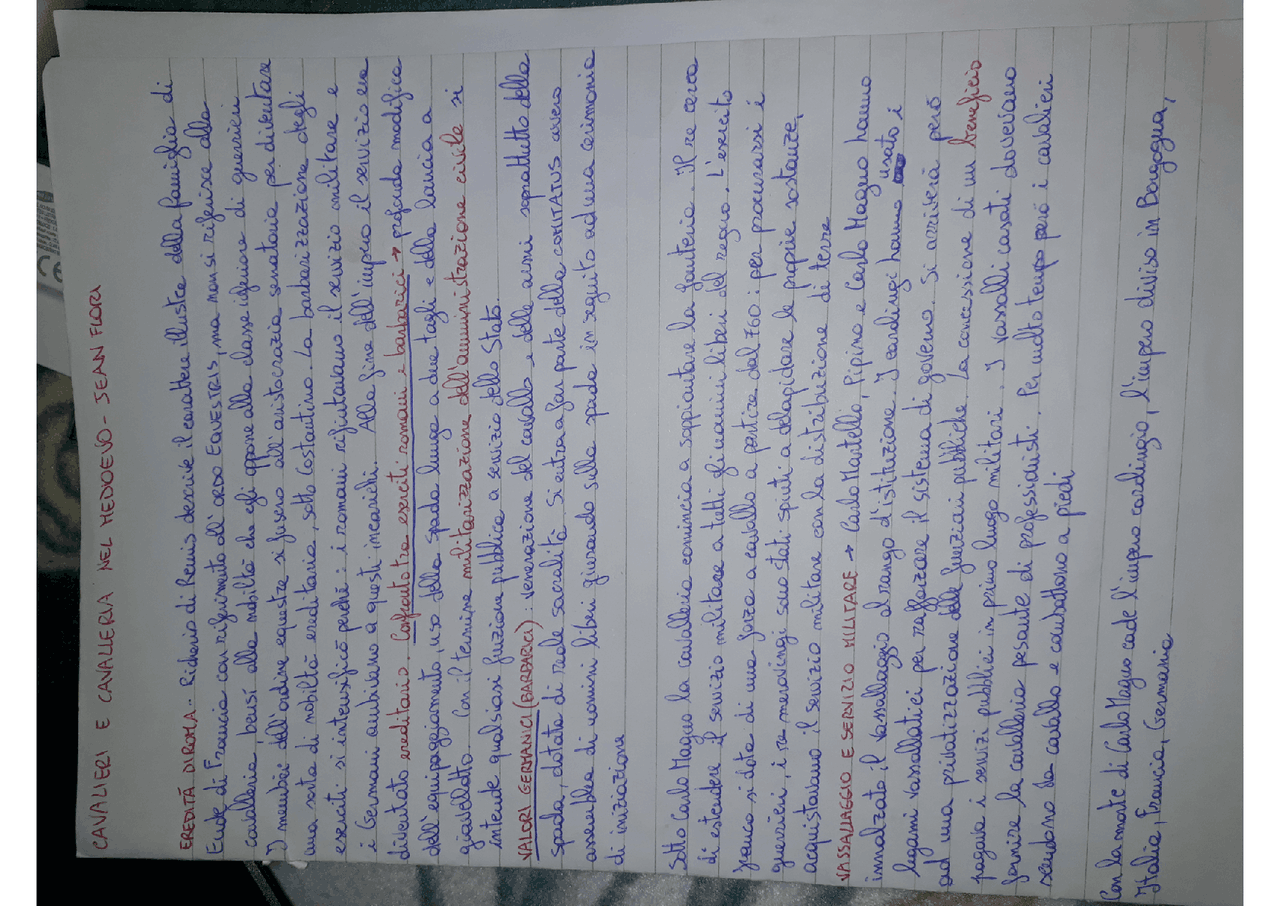 CAVALIERI E CAVALLERIA NEL MEDOEVO - JEAN FLORI
EREDITÀ DI ROMA - Richerio di Reims descrive il carattere illustre della famiglia di
Eude di Francia con riferimento all'ORDO EQUESTRIS, ma non si riferisce alla
cavalleria, bensì alla nobiltà che egli oppone alla classe inferiore di guerrieri
I membri dell'ordine equestre si fusero all'aristocrazia senatoria per diventare
una sorta di nobiltà ereditaria, sotto Costantino. La barbarizzazione degli
eserciti si intensificò perché: i romani rifiutavano il servizio militare e
i Germani ambivano a questi incarichi. Alla fine dell'impero il servizio era
diventato ereditario. Confronto tra eserciti romani e barbarici → profonda modifica
dell'equipaggiamento, uso della spada lunga a due tagli e della lancia a
giavellotto. Con il termine militarizzazione dell'amministrazione civile si
intende qualsiasi funzione pubblica a servizio dello Stato.
VALORI GERMANICI (BARBARICI): venerazione del cavallo e delle armi soprattutto della
spada, dotata di reale sacralità. Si entra a far parte della COMITATUS ovvero
assemblea di uomini liberi giurando sulla spada in seguito ad una cerimonia
di iniziazione
Sotto Carlo Magno la cavalleria comincia a soppiantare la fanteria. Il re cerca
di estendere il servizio militare a tutti gli uomini liberi del regno. L'esercito
franco si dota di una forza a cavallo a partire dal 760: per procurarsi i
guerrieri, i re merovingi sono stati spinti a delapidare le proprie sostanze,
acquistavano il servizio militare con la distribuzione di terre
VASSALLAGGIO E SERVIZIO MILITARE → Carlo Martello, Pipino e Carlo Magno hanno
innalzato il vassallaggio al rango d'istituzione. I carolingi hanno usato i
legami vassallatici per rafforzare il sistema di governo. Si arriverà però
ad una privatizzazione delle funzioni pubbliche. La concessione di un beneficio
pagava i servizi pubblici in primo luogo militari. I vassalli casati dovevano
fornire la cavalleria pesante di professionisti. Per molto tempo però i cavalieri
scendono da cavallo e combattono a piedi
Con la morte di Carlo Magno cade l'impero carolingio, l'impero diviso in Borgogna,
Italia, Francia, Germania